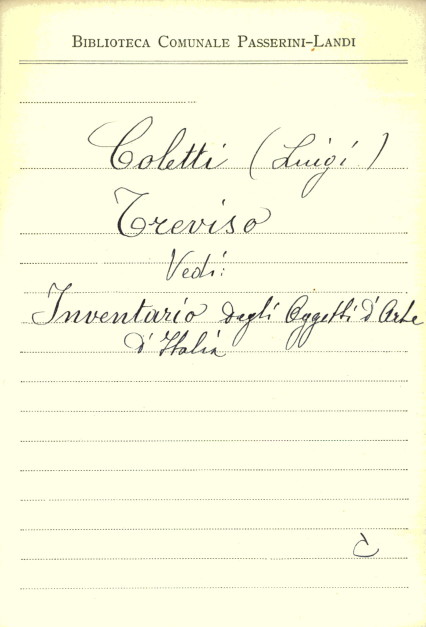 BIBLIOTECA COMUNALE PASSERINI-LANDI
Coletti (Luigi)
Treviso
Vedi:
Inventario degli Oggetti d'Arte
d'Italia